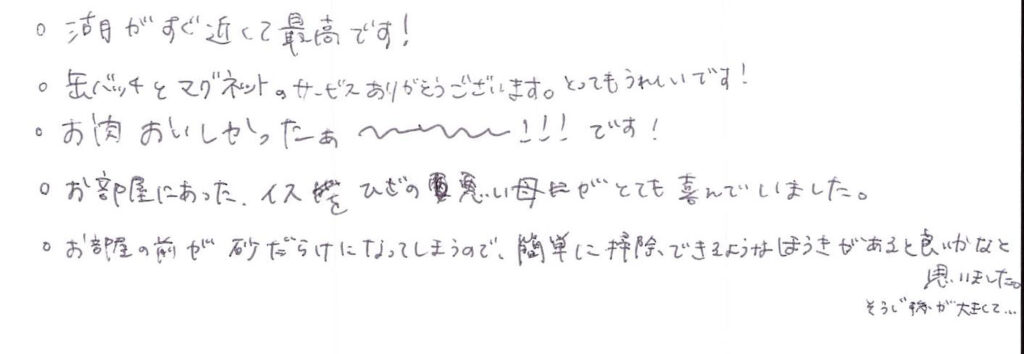 ○ 湖がすぐ近くて最高です!
○ 缶バッチとマグネットのサービスありがとうございます。とってもうれしいです!
○ お肉 おいしかったぁ 〜〜〜!!! です!
○ お部屋にあった、イスを ひざの悪い母がとても喜んでいました。
○ お部屋の前が 砂だらけになってしまうので、簡単に掃除できるようなほうきがあると良いかなと
思いました。
そうじ機が大きくて…